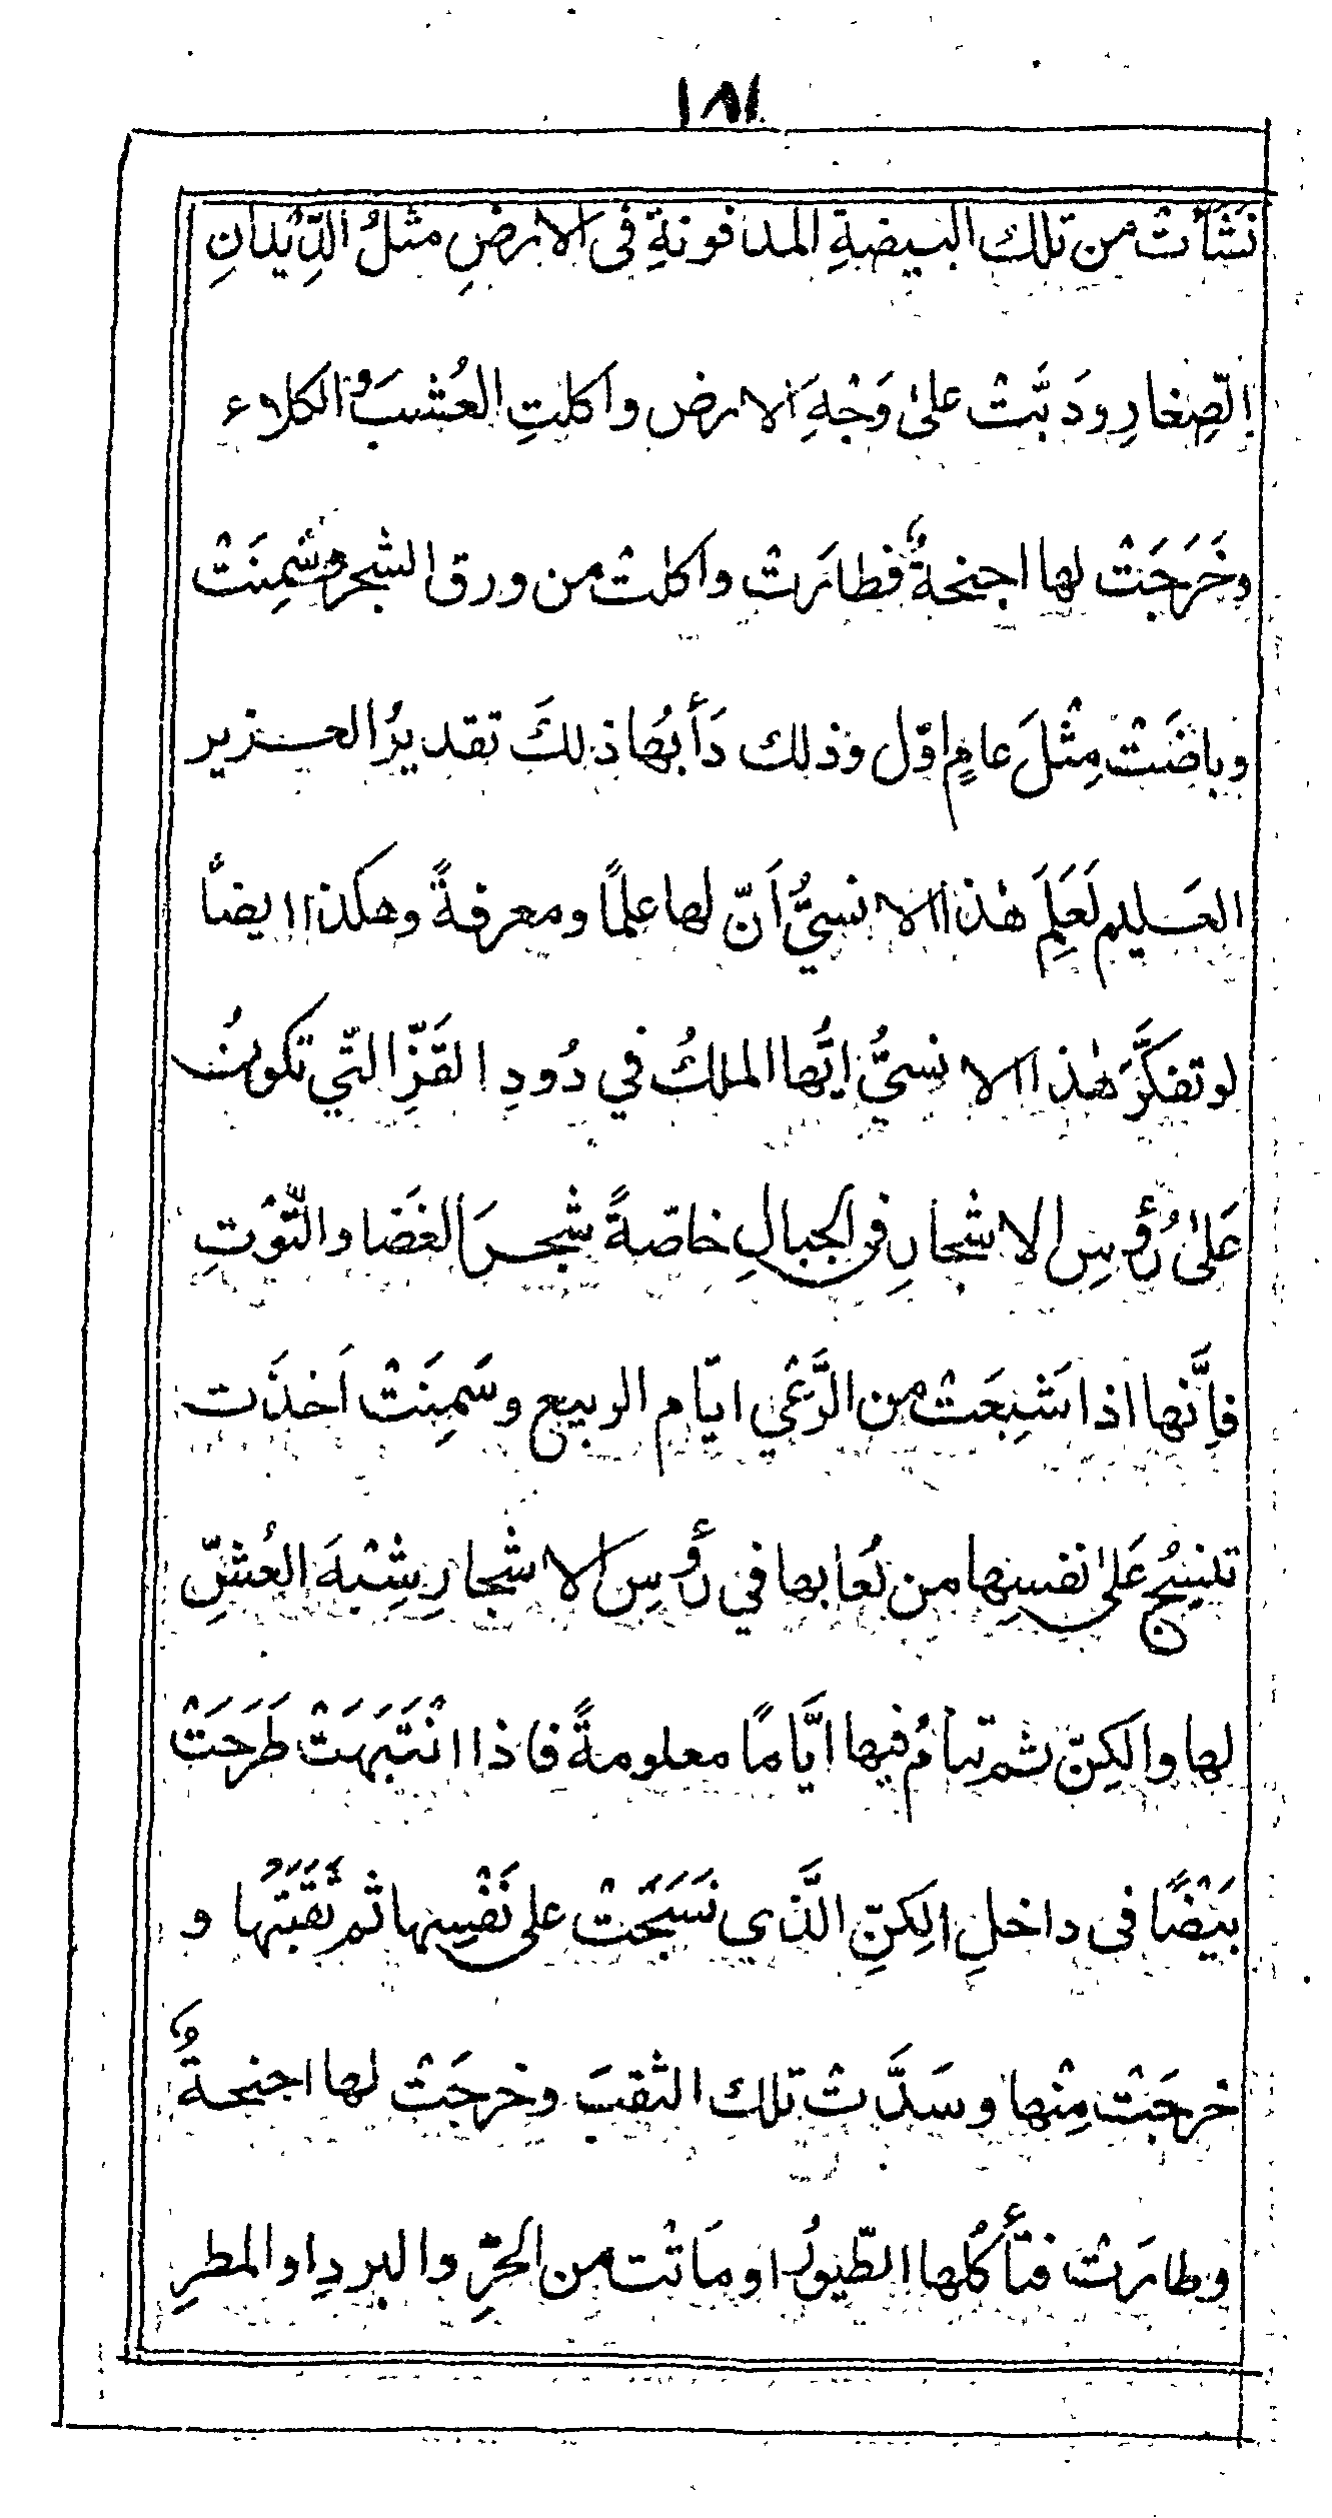 ١٨١
نَشَأَتْ من تلك البيضةِ المدفونةِ فى الارضِ مثلُ الدِّيْدَانِ
الصِّغارِ ودَبَّتْ علىٰ وَجْهِ الارض واكلتِ العُشبَ والكلاء
وخَرَجَتْ لها اجنحةٌ فطارَتْ واكلتْ من ورق الشجر وسَمِنَتْ
وباضَتْ مِثْلَ عامٍ اوّل وذلك دَأبُهَا ذٰلكَ تقديرُ العزيز
العَليم لَعَلِمَ هٰذا الانسيُّ اَنّ لها علمًا ومعرفةً وهكذا ايضاً
لو تفكَّرَ هٰذا الانسيُّ ايّها الملكُ في دُودِ القَزِّ التّي تكونُ
عَلىٰ رُؤسِ الاشجارِ فى الجبالِ خاصّةً شجرَ الغَضَا والتُّوْتِ
فاِنَّها اذا شَبِعَتْ من الرَّعْي ايّام الربيع وسَمِنَتْ اَخذَت
تنسِجُ عَلىٰ نفسِها من لُعابها في رؤسِ الاشجارِ شِبْهَ العُشِّ
لها والكِنّ ثم تنامُ فيها ايَّامًا معلومةً فاذا انْتَبَهَتْ طَرَحَتْ
بَيْضًا فى داخلِ الكِنِّ الَّذي نَسَجَتْ على نَفْسِها ثم ثَقَبَتْهَا و
خرجَتْ مِنْها وسَدَّتْ تلك الثقبَ وخرجَتْ لها اجنحةٌ
وطارَتْ فتأكُلها الطّيورُ او مَاتَتْ من الحَرِّ والبردِ او المطرِ